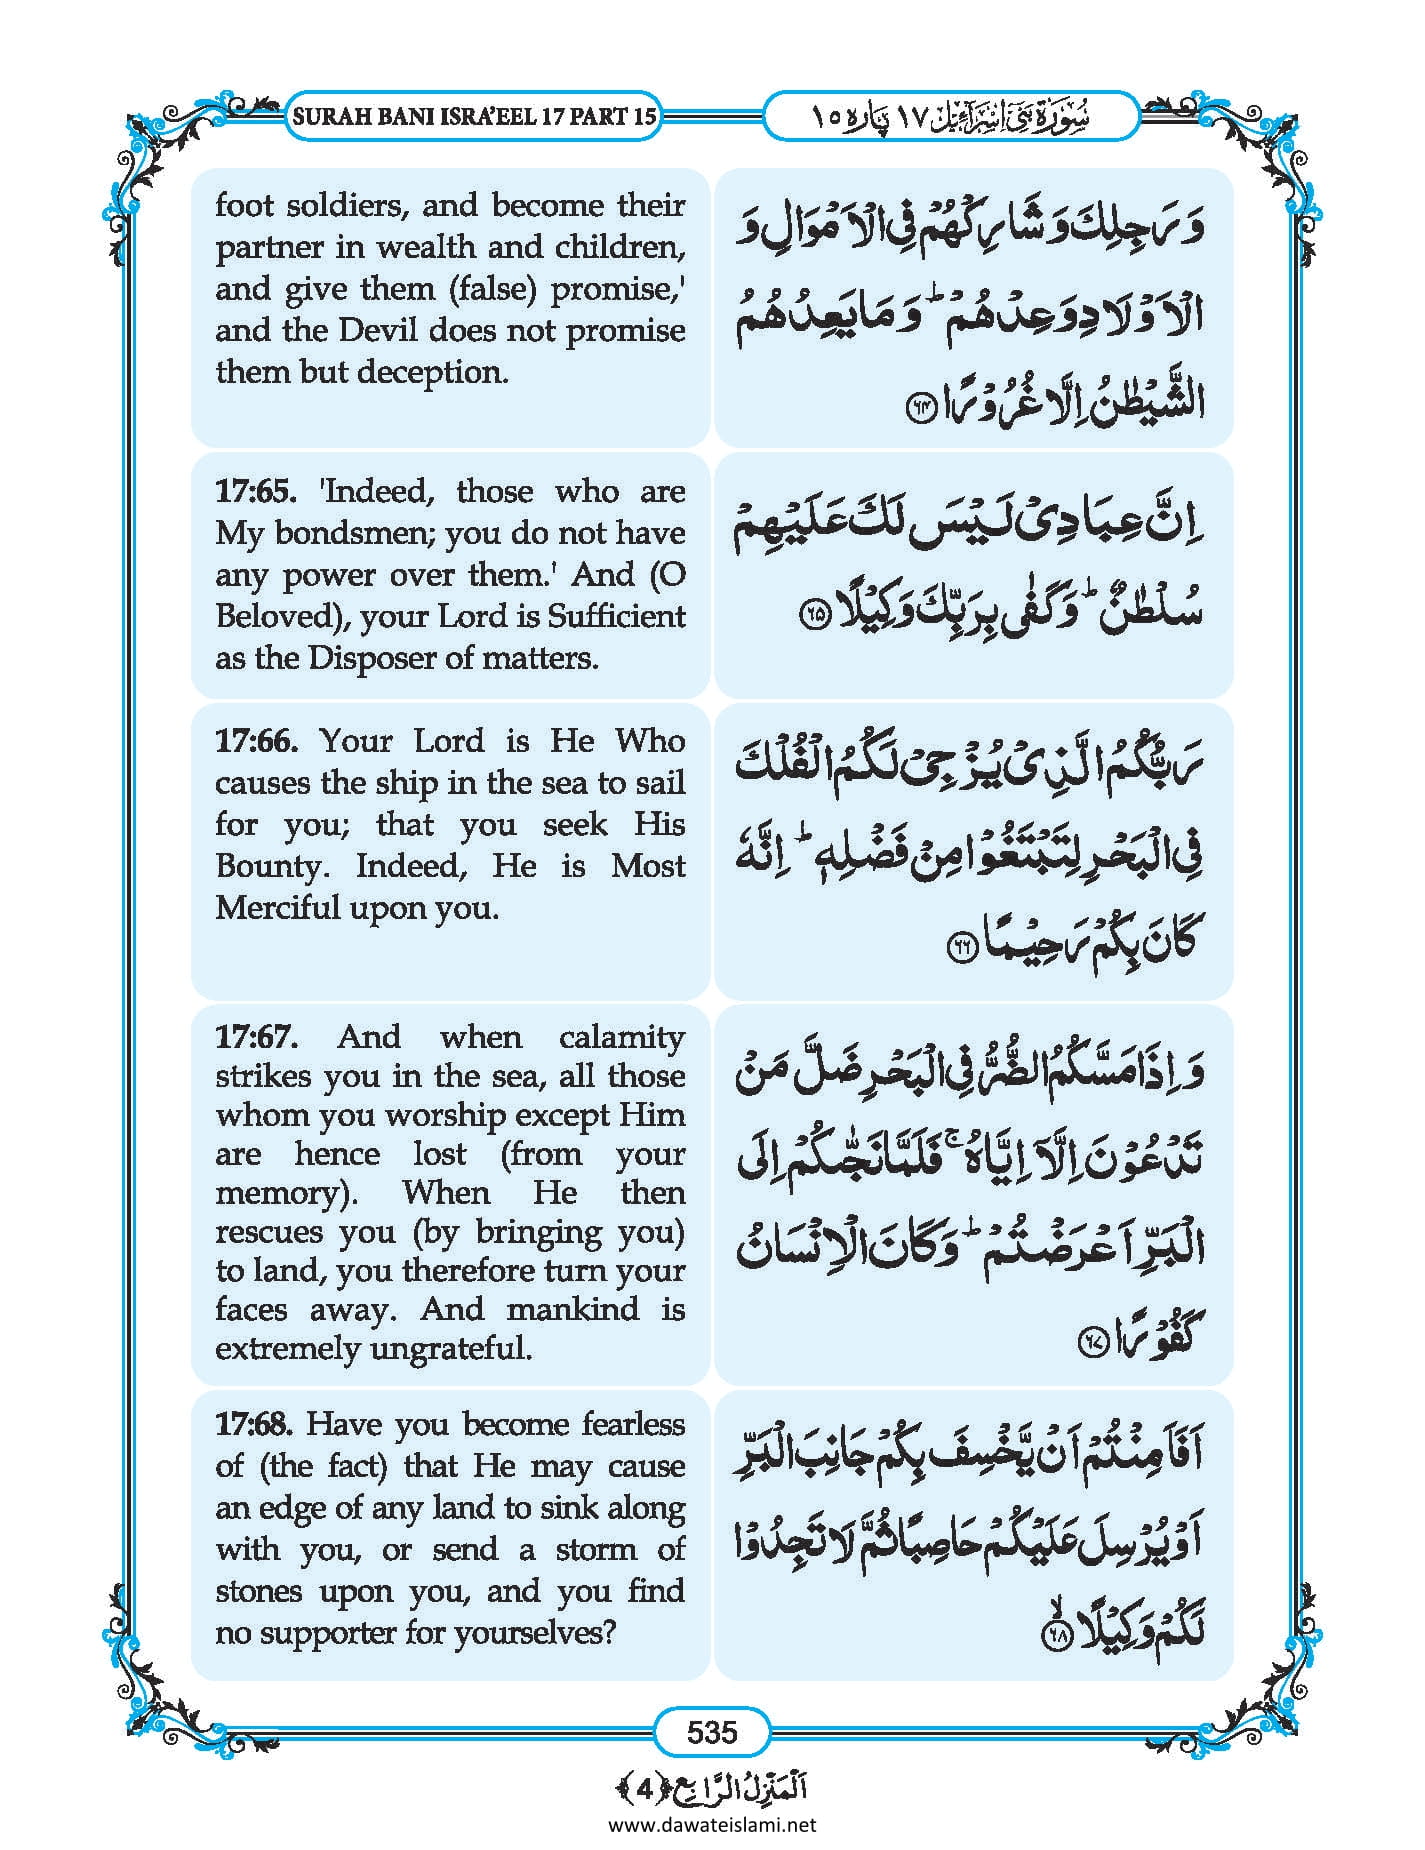 SURAH BANI ISRA'EEL 17 PART 15
سُوْرَۃُ بَنِیْۤ اِسْرَآءِیْل ١٧ پارہ ١٥
foot soldiers, and become their
partner in wealth and children,
and give them (false) promise,'
and the Devil does not promise
them but deception.
وَ رَجِلِكَ وَ شَارِكْهُمْ فِی الْاَمْوَالِ وَ
الْاَوْلَادِ وَعِدْهُمْ ؕ وَ مَا یَعِدُهُمُ
الشَّیْطٰنُ اِلَّا غُرُوْرًا ﴿۶۴﴾
17:65. 'Indeed, those who are
My bondsmen; you do not have
any power over them.' And (O
Beloved), your Lord is Sufficient
as the Disposer of matters.
اِنَّ عِبَادِیْ لَیْسَ لَكَ عَلَیْهِمْ
سُلْطٰنٌ ؕ وَ كَفٰی بِرَبِّكَ وَكِیْلًا ﴿۶۵﴾
17:66. Your Lord is He Who
causes the ship in the sea to sail
for you; that you seek His
Bounty. Indeed, He is Most
Merciful upon you.
رَبُّكُمُ الَّذِیْ یُزْجِیْ لَكُمُ الْفُلْكَ
فِی الْبَحْرِ لِتَبْتَغُوْا مِنْ فَضْلِهٖ ؕ اِنَّهٗ
كَانَ بِكُمْ رَحِیْمًا ﴿۶۶﴾
17:67. And when calamity
strikes you in the sea, all those
whom you worship except Him
are hence lost (from your
memory). When He then
rescues you (by bringing you)
to land, you therefore turn your
faces away. And mankind is
extremely ungrateful.
وَ اِذَا مَسَّكُمُ الضُّرُّ فِی الْبَحْرِ ضَلَّ مَنْ
تَدْعُوْنَ اِلَّاۤ اِیَّاهُ ۚ فَلَمَّا نَجّٰىكُمْ اِلَی
الْبَرِّ اَعْرَضْتُمْ ؕ وَ كَانَ الْاِنْسَانُ
كَفُوْرًا ﴿۶۷﴾
17:68. Have you become fearless
of (the fact) that He may cause
an edge of any land to sink along
with you, or send a storm of
stones upon you, and you find
no supporter for yourselves?
اَفَاَمِنْتُمْ اَنْ یَّخْسِفَ بِكُمْ جَانِبَ الْبَرِّ
اَوْ یُرْسِلَ عَلَیْكُمْ حَاصِبًا ثُمَّ لَا تَجِدُوْا
لَكُمْ وَكِیْلًا ۙ﴿۶۸﴾
535
اَلْمَنْزِلُ الرَّابِع ﴿4﴾
www.dawateislami.net